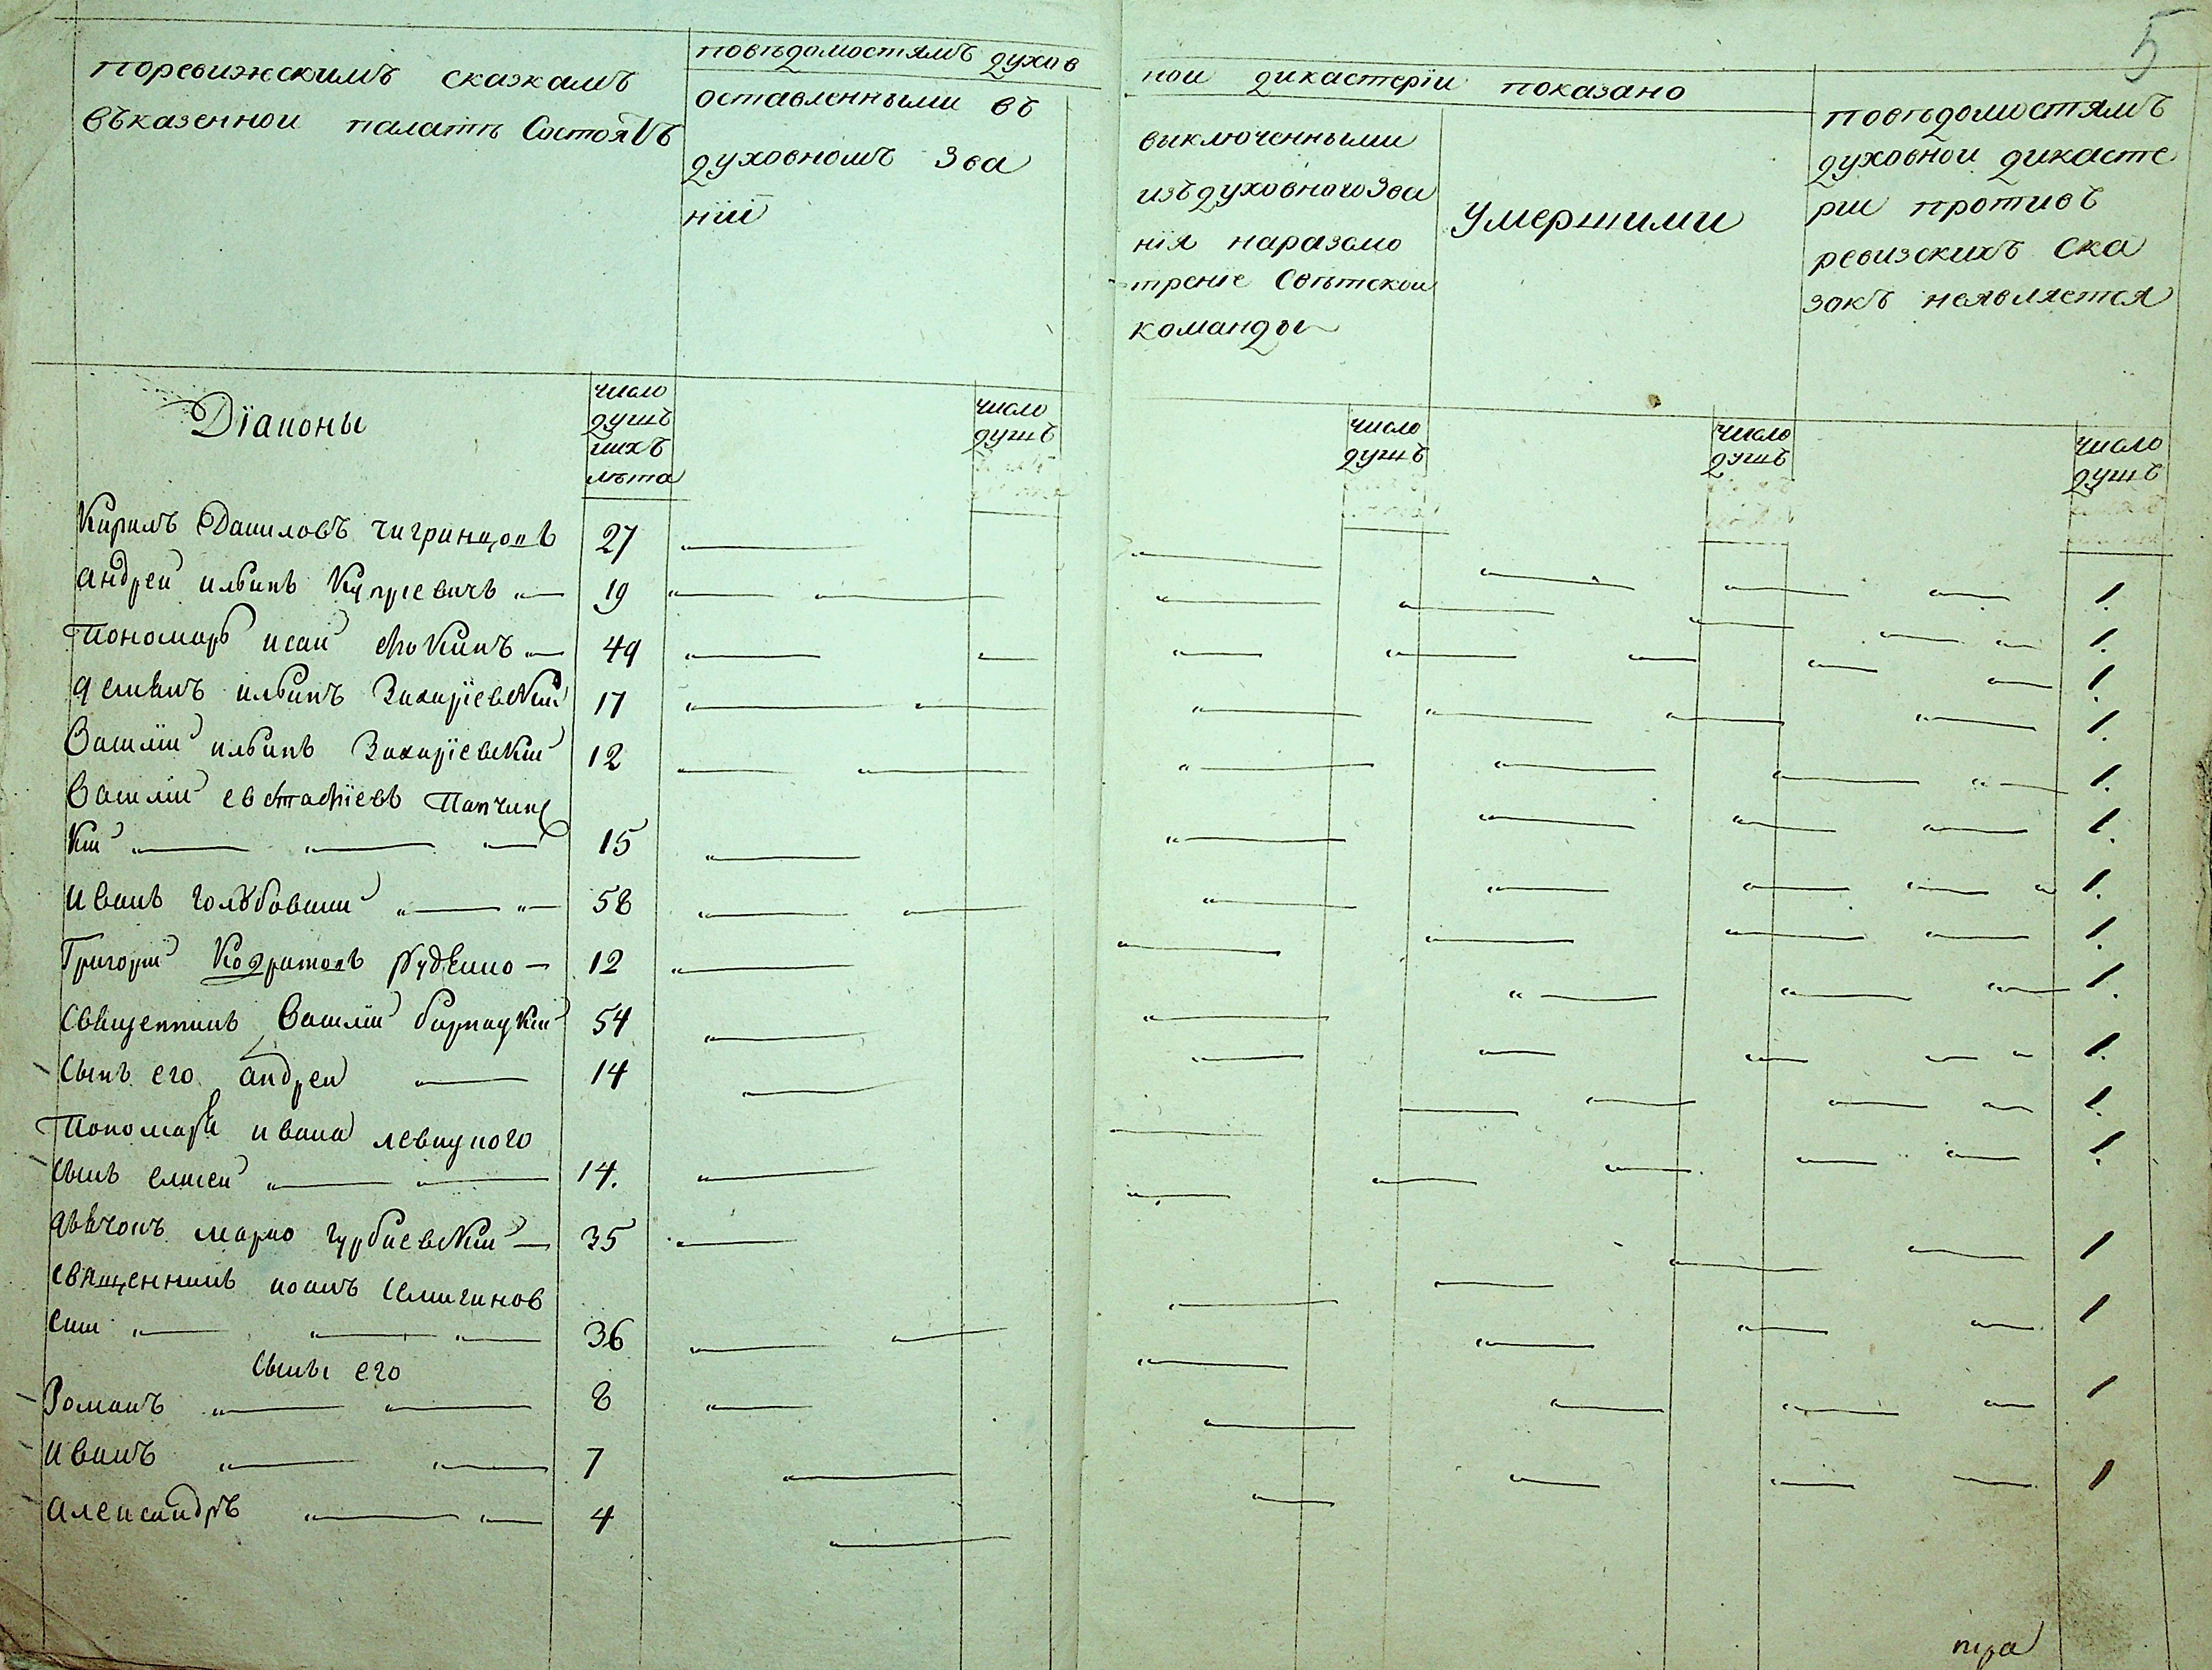 5
поревизскимъ сказкамъ
въказенной палате Состоятъ
поведомостямъ духов
оставленными въ
духовномъ Зва
нїи
ной дикастерїи показано
выключенными
изъдуховногоЗва
нїя наразсмо
трение Светской
команды
умершими
поведомостямъ
духовной дикасте
рiи противъ
ревизскихъ ска
зокъ неявляется
Дїаконы
число
душъ
ихъ
лета
число
душъ
число
душъ
число
душъ
число
душъ
Кирилъ Даниловъ чигринцовъ 27 1.
андрей ильинъ Купрiевичъ 19 1.
Пономарь исаи фокинъ 49 1.
демянъ ильинъ Захарїевский 17 1.
Василїй ильинъ Захарїевский 12 1.
Василїй евстафїевъ Папчинс
кий 15 1.
иванъ голубовский 58 1.
Григорїй Кодратовъ Руденко 12 1.
священникъ Василїй 54 1.
сынъ его андрей 14 1.
Пономаря ивана левицкого
сынъ елисей 14. 1.
дьячокъ марко 35 1.
священникъ иоанъ Семигинов
ский 36 1
сыны его
Романъ 8 1
иванъ 7 1
александръ 4 1